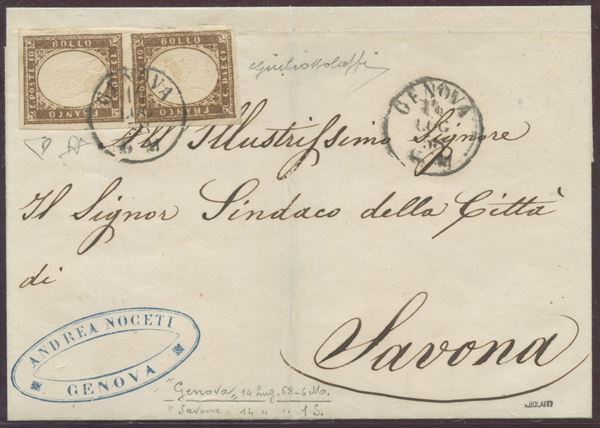 BOLLO BOLLO
POSTE POSTE
FRANCO FRANCO
GENOVA
GENOVA
14
LUG
6 M
Giulio Bolaffi
All Illustrissimo Signore
Il Signor Sindaco della Città
di
Savona
ANDREA NOCETI
GENOVA
"Genova, 14 Lug. 58-6 Mo.
"Savona, 14 " " 1 S.
A. BOLAFFI